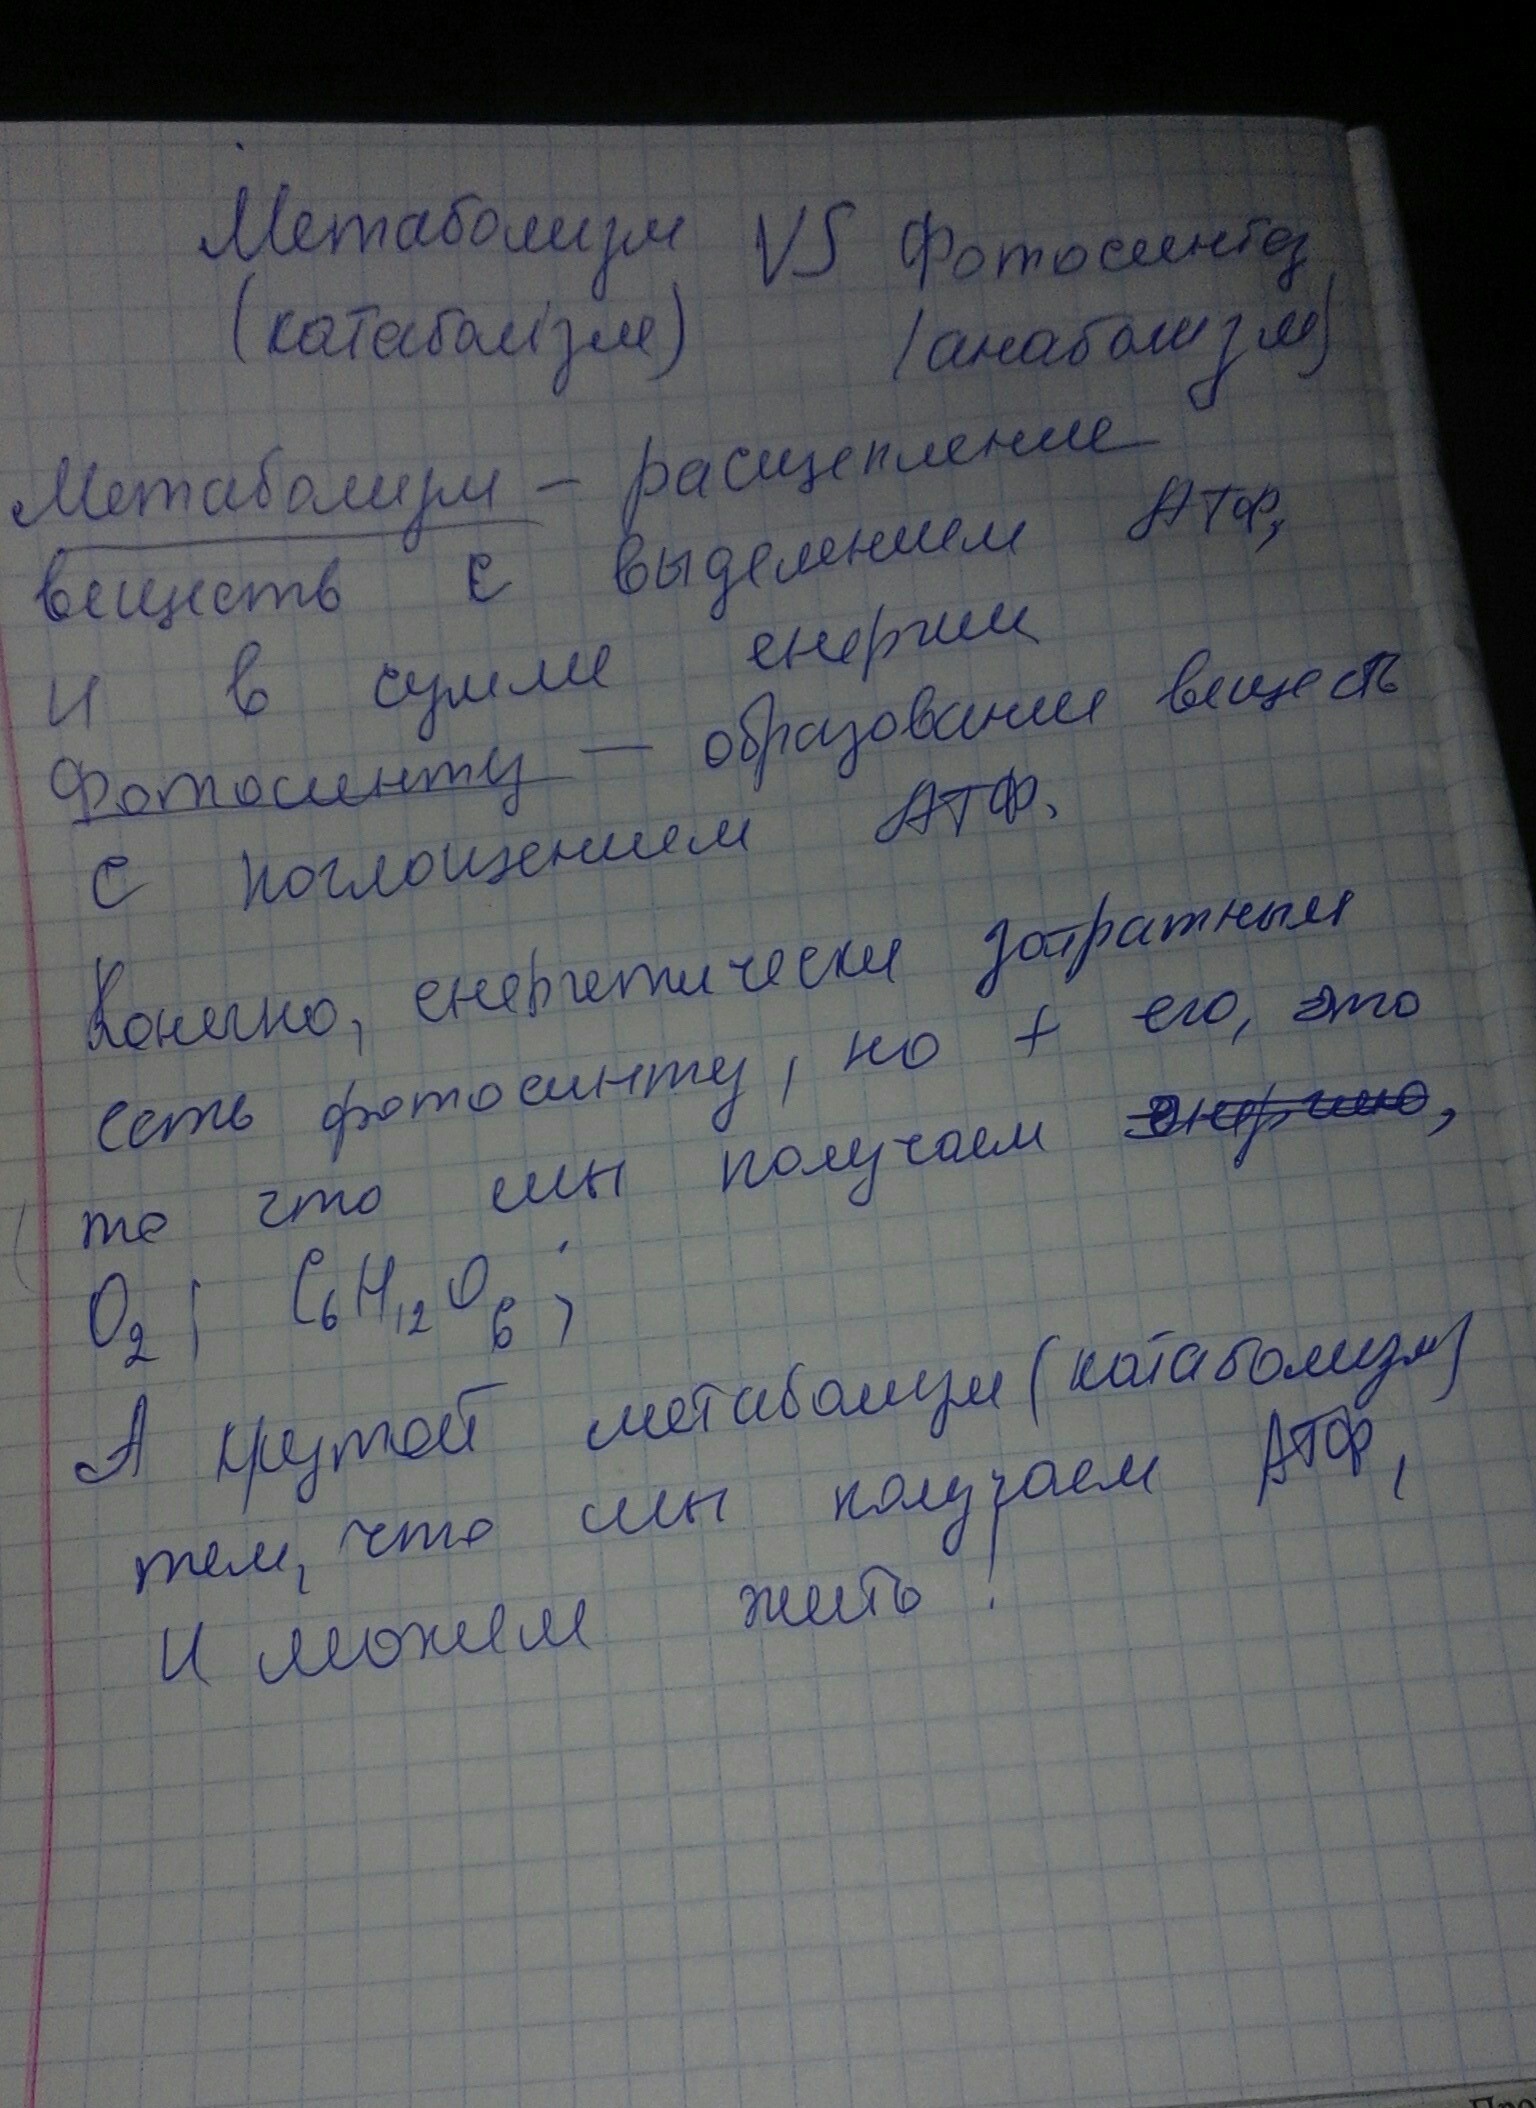 Метаболизм VS Фотосинтез
(катаболізм) (анаболизм)
Метаболизм – расщепление
веществ с выделением АТФ,
и в сумме енергии
Фотосинтез – образование веществ
с поглощением АТФ.
Конечно, енергетически затратным
есть фотосинтез, но + его, это
то что мы получаем энергию,
O2; C6H12O6;
А крутой метаболизм (катаболизм)
тем, что мы получаем АТФ,
и можем жить!